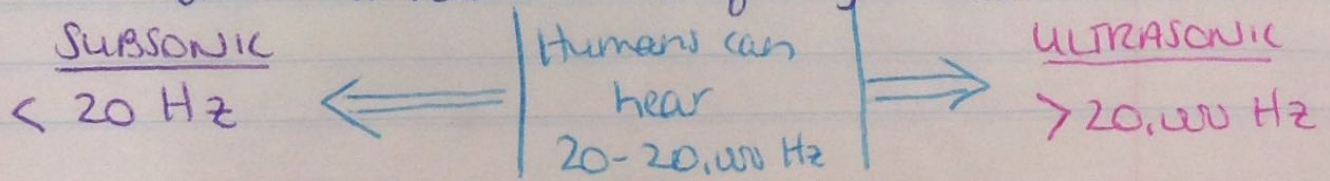 SUBSONIC
< 20 Hz
Humans can
hear
20-20,000 Hz
ULTRASONIC
>20,000 Hz